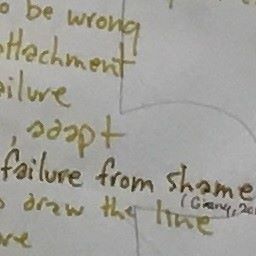 o be wrong
ttachment
ailure
, adapt
failure from shame
draw the line